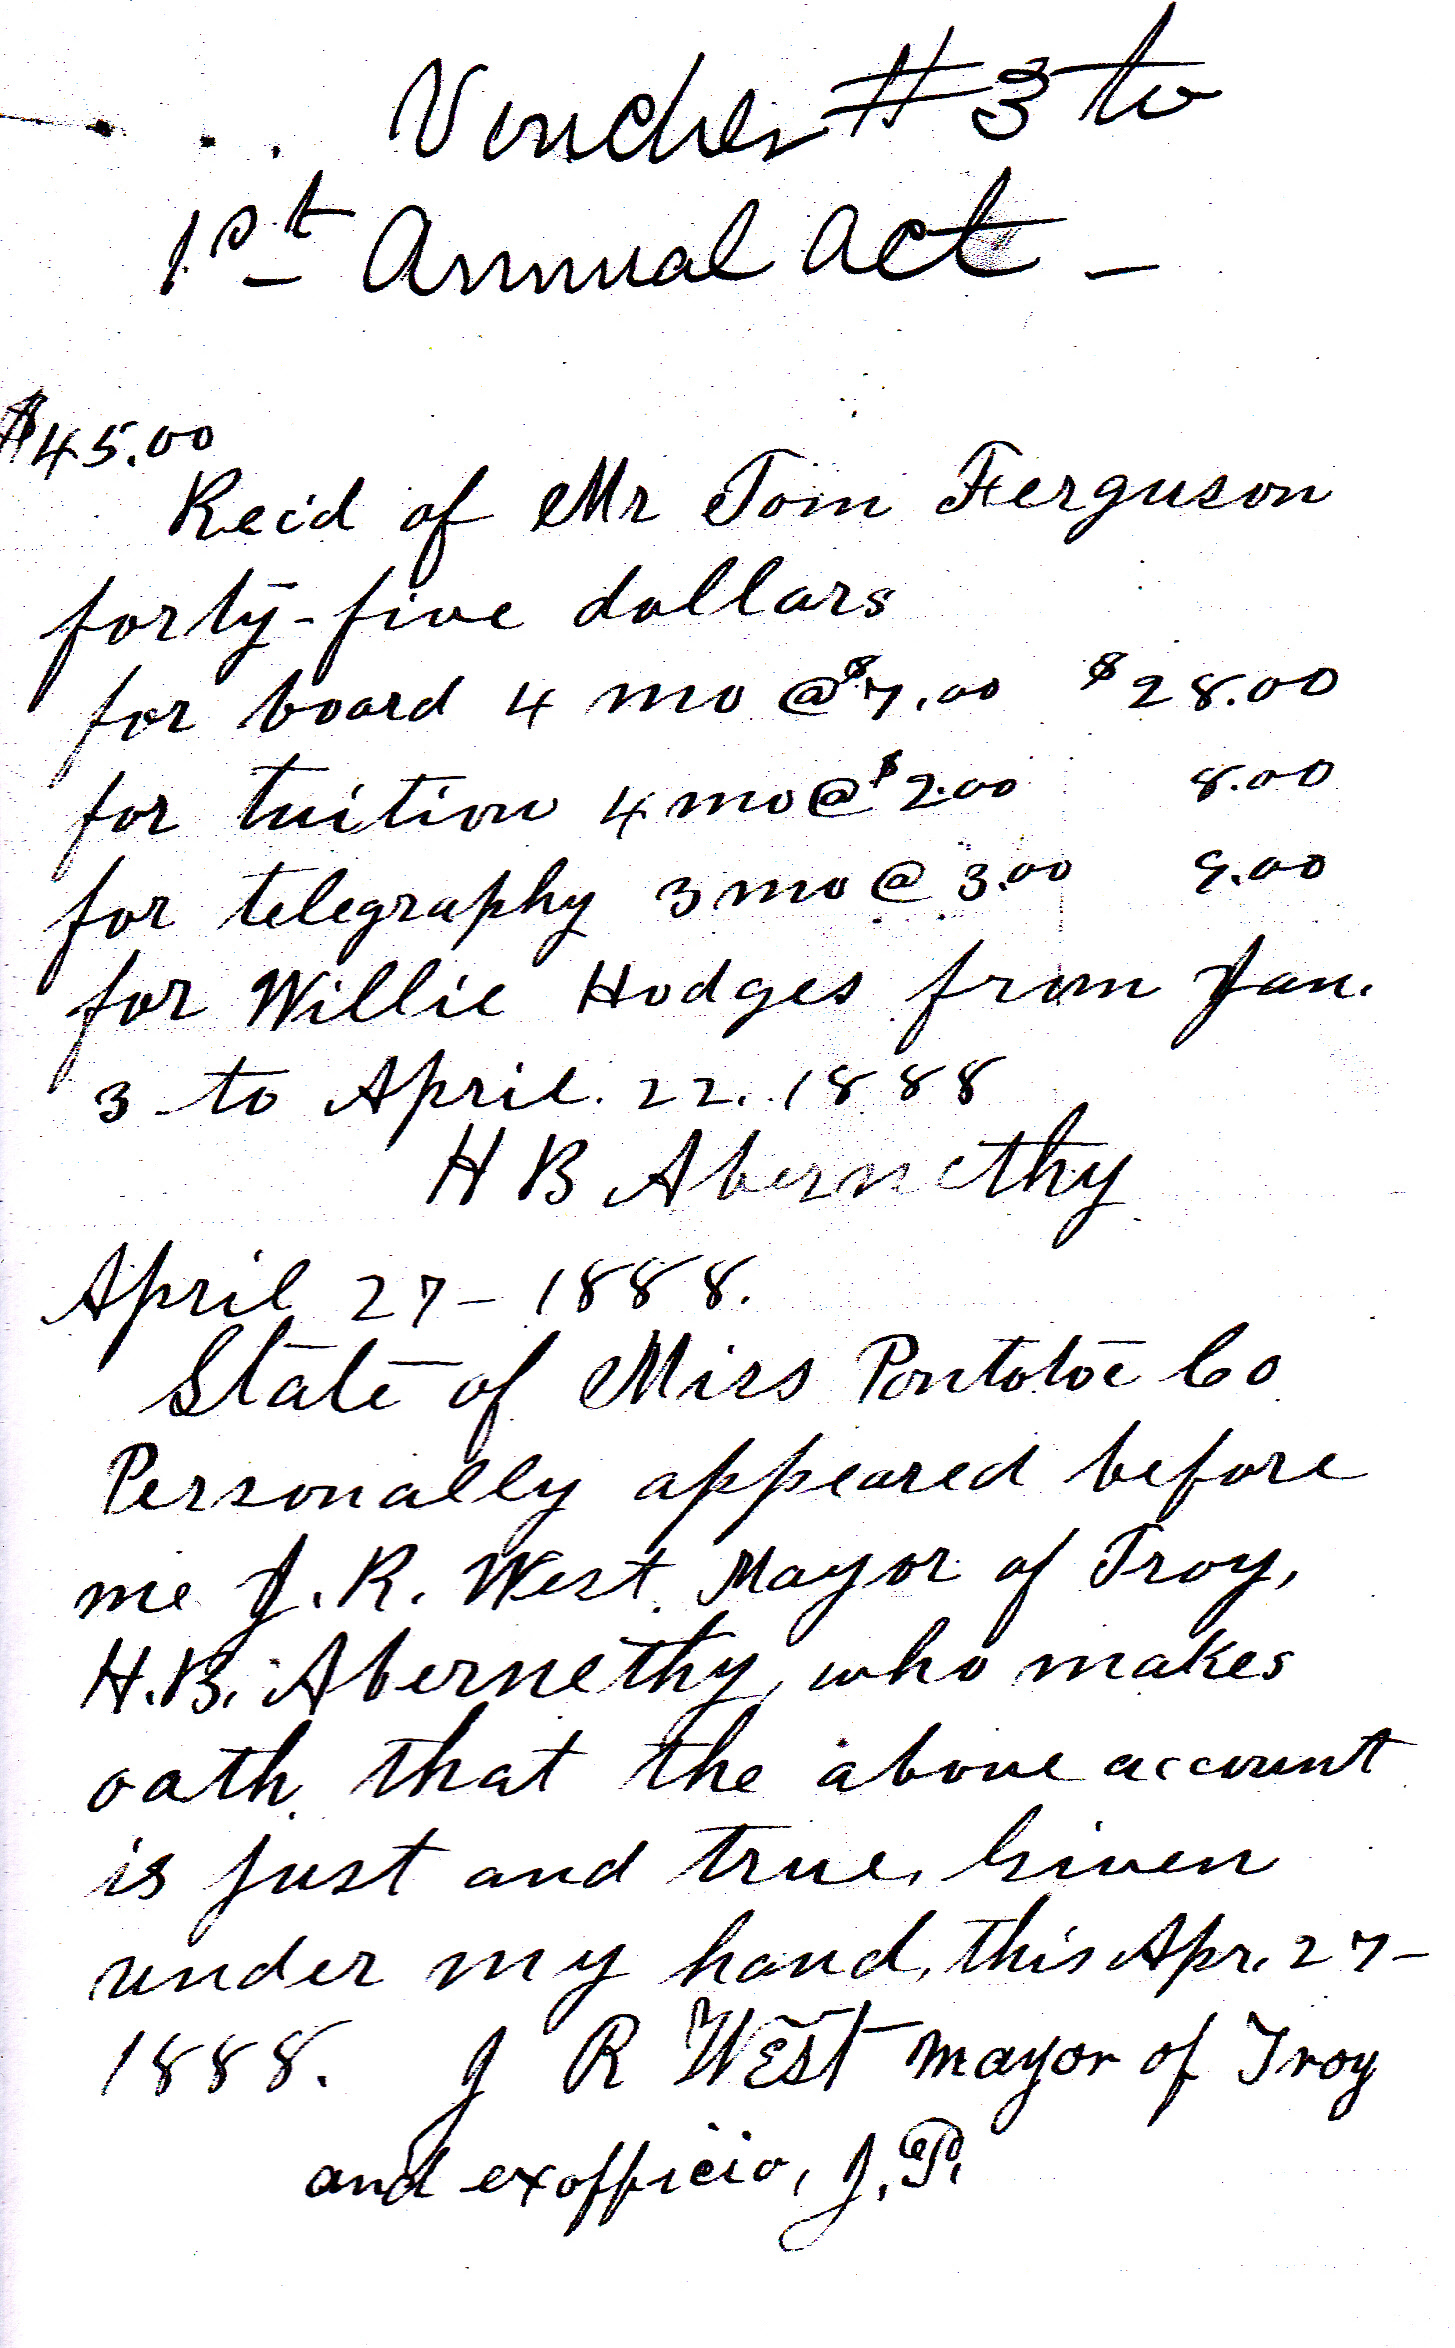 Voucher #3 to
1st Annual Act -
$45.00
Recd of Mr Tom Ferguson
forty-five dollars
for board 4 mo @ $7.00 $28.00
for tuition 4 mo @ $2.00 8.00
for telegraphy 3 mo @ 3.00 9.00
for Willie Hodges from Jan.
3 to April. 22. 1888
H B Abernethy
April 27- 1888.
State of Miss Pontotoc Co
Personally appeared before
me J. R. West Mayor of Troy,
H.B. Abernethy, who makes
oath that the above account
is just and true. Given
under my hand, this Apr. 27-
1888. J R West Mayor of Troy
and exofficio, J.P.